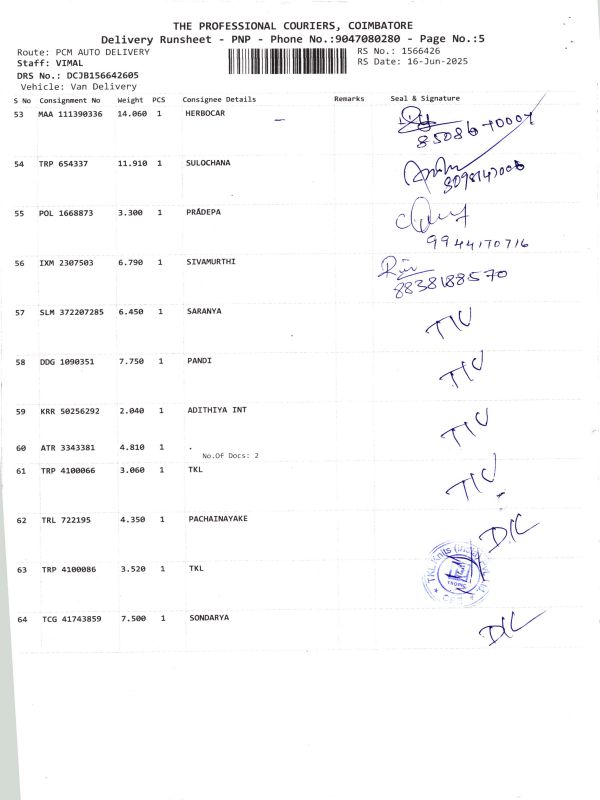 THE PROFESSIONAL COURIERS, COIMBATORE
Delivery Runsheet - PNP - Phone No.:9047080280 - Page No.:5
Route: PCM AUTO DELIVERY RS No.: 1566426
Staff: VIMAL RS Date: 16-Jun-2025
DRS No.: DCJB156642605
Vehicle: Van Delivery
S No Consignment No Weight PCS Consignee Details Remarks Seal & Signature
53 MAA 111390336 14.060 1 HERBOCAR
54 TRP 654337 11.910 1 SULOCHANA
55 POL 1668873 3.300 1 PRADEPA
9944170716
56 IXM 2307503 6.790 1 SIVAMURTHI
8838188570
57 SLM 372207285 6.450 1 SARANYA TIC
58 DDG 1090351 7.750 1 PANDI TIC
59 KRR 50256292 2.040 1 ADITHIYA INT TIC
60 ATR 3343381 4.810 1 .
No.Of Docs: 2
61 TRP 4100066 3.060 1 TKL TIC
62 TRL 722195 4.350 1 PACHAINAYAKE D/C
63 TRP 4100086 3.520 1 TKL
64 TCG 41743859 7.500 1 SONDARYA D/C